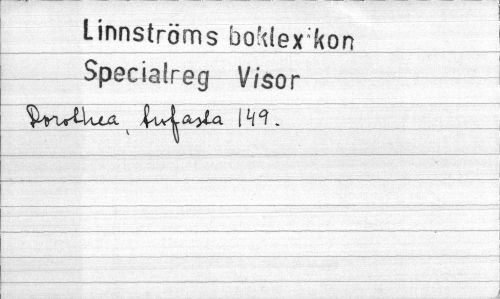 Linnströms boklexikon
Specialreg Visor
Dorothea, 149.